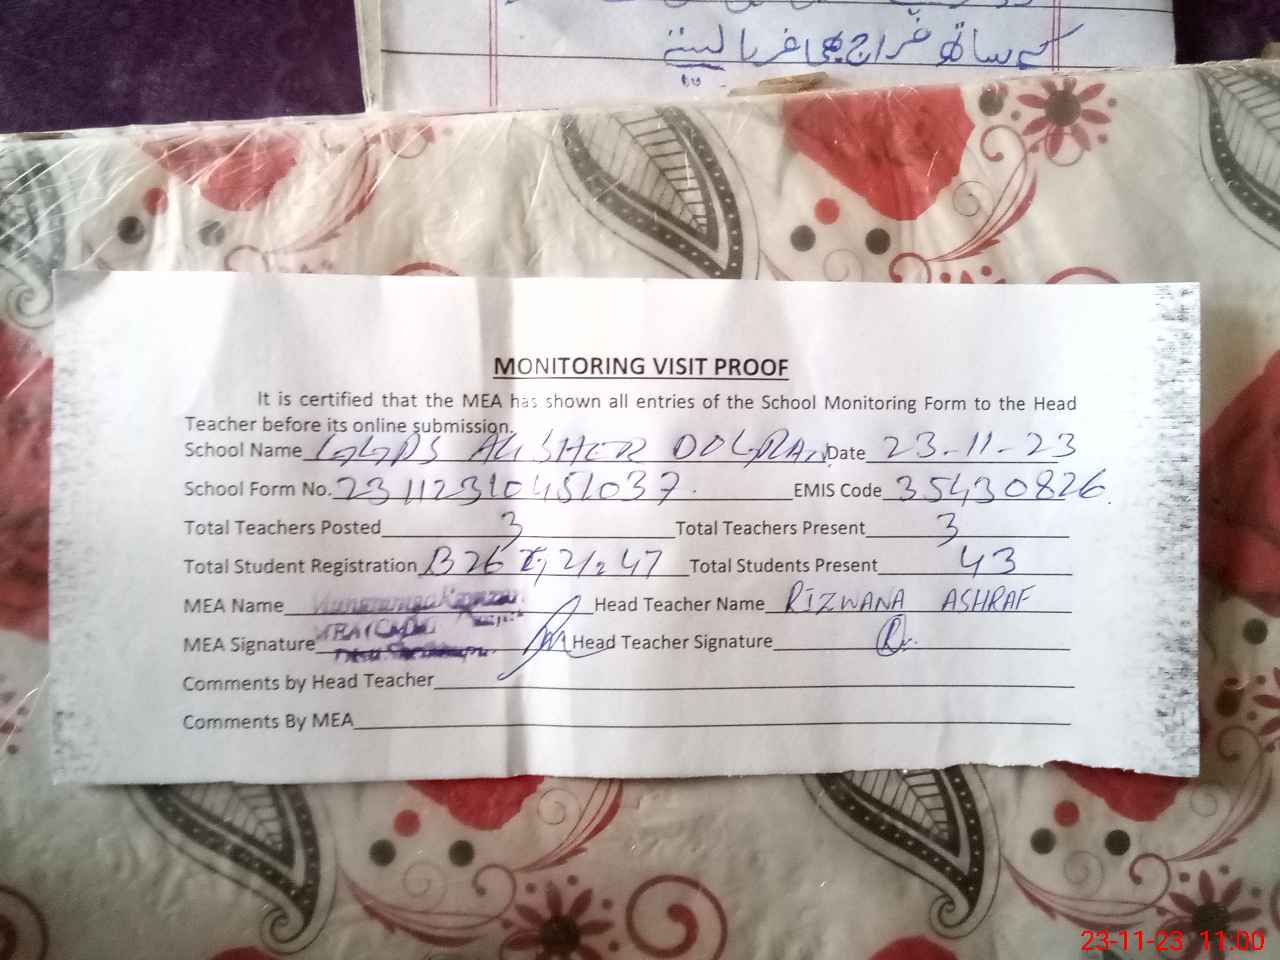 کے ساتھ
MONITORING VISIT PROOF
It is certified that the MEA has shown all entries of the School Monitoring Form to the Head
Teacher before its online submission.
School Name GGPS ALI SHER Date 23-11-23
School Form No. 23112310451037 EMIS Code 35430826
Total Teachers Posted 3 Total Teachers Present 3
Total Student Registration B 26 47 Total Students Present 43
MEA Name Head Teacher Name RIZWANA ASHRAF
MEA Signature Head Teacher Signature
Comments by Head Teacher
Comments By MEA
23-11-23 11:00